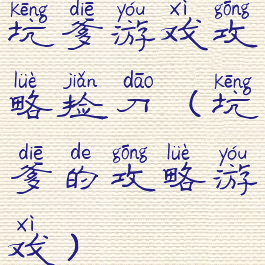 kēng diē yóu xì gōng
坑爹游戏攻
lüè jiǎn dāo kēng
略捡刀（坑
diē de gōng lüè yóu
爹的攻略游
xì
戏）